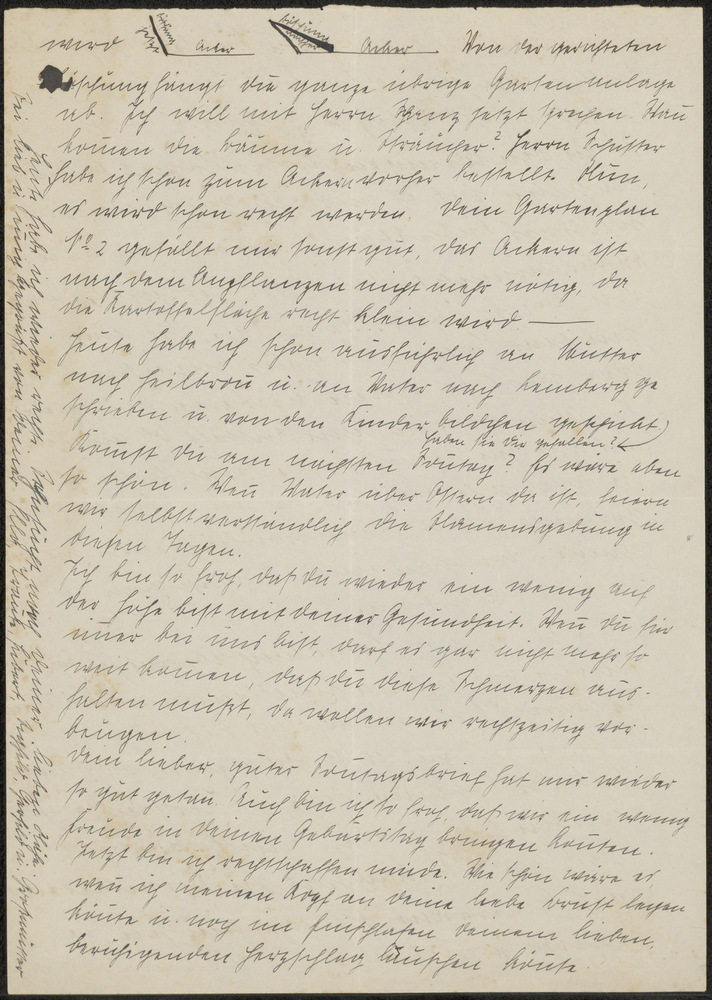 wird Acker Acker. Von der gerichteten
Böschung hängt die ganze übrige Gartenanlage
ab. Ich will mit Herrn jetzt sprechen. Wann
kommen die Bäume u. Sträucher? Herrn Schuster
habe ich schon zum Ackern vorher bestellt. Nun,
es wird schon recht werden. Dein Gartenplan
No 2 gefällt mir sonst gut, das Ackern ist
nach dem Anpflanzen nicht mehr nötig, da
die Kartoffelfläche recht klein wird —
Heute habe ich schon ausführlich an Mutter
nach Heilbronn u. an Vater nach Lemberg ge
schrieben u. von den Kinderbildchen geschickt)
haben sie Dir gefallen?
Kommst Du am nächsten Sonntag? Es wäre eben
so schön. Wenn Vater über Ostern da ist, feiern
wir selbstverständlich die Namensgebung in
diesen Tagen.
Ich bin so froh, daß du wieder ein wenig auf
der Höhe bist mit deiner Gesundheit. Wenn du für
immer bei uns bist, darf es gar nicht mehr so
weit kommen, daß du diese Schmerzen aus-
halten mußt, da wollen wir rechtzeitig vor-
beugen.
Dein lieber, guter Sonntagsbrief hat mir wieder
so gut getan. Auch bin ich so froh, daß wir ein wenig
Freude in deinen Geburtstag bringen konnten.
Jetzt bin ich rechtschaffen müde. Wie schön wäre es,
wenn ich meinen Kopf an deine liebe Brust legen
könnte u. noch im Einschlafen deinem lieben,
beruhigenden Herzschlag lauschen könnte.
Heute hab ich wieder recht Sehnsucht nach Deiner lieben
Sei lieb u. innig gegrüßt von Deiner